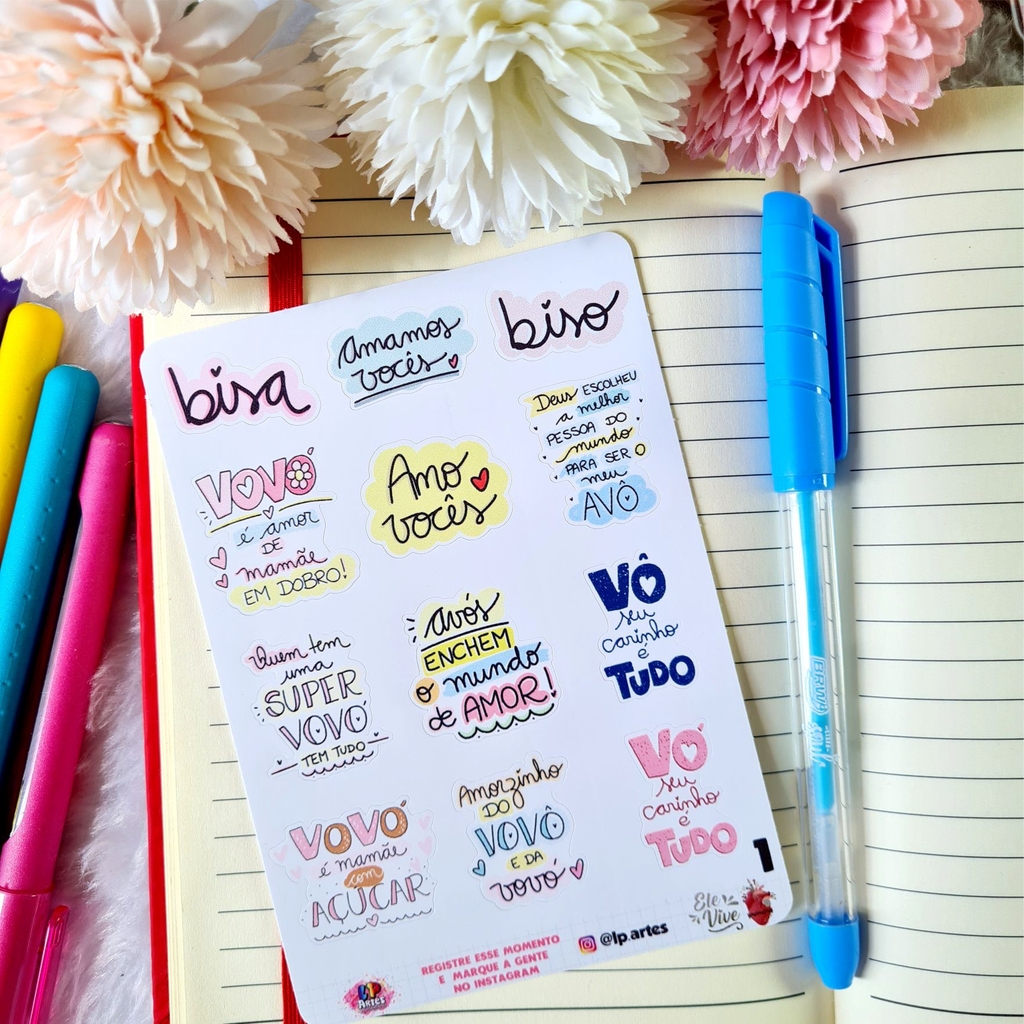 bisa
amamos
vocês
biso
VOVÓ
é amor
DE
mamãe
EM DOBRO!
Amo
vocês
Deus ESCOLHEU
a melhor
PESSOA DO
mundo
PARA SER O
meu
AVÔ
Quem tem
uma
SUPER
VOVÓ
TEM TUDO
avós
ENCHEM
o mundo
de AMOR!
VÔ
seu
carinho
é
TUDO
VOVÓ
é mamãe
com
AÇÚCAR
Amorzinho
DO
VOVÔ
E DA
vovó
VÓ
seu
carinho
é
TUDO
1
LP
ARTES
REGISTRE ESSE MOMENTO
E MARQUE A GENTE
NO INSTAGRAM
@lp.artes
Ele
Vive